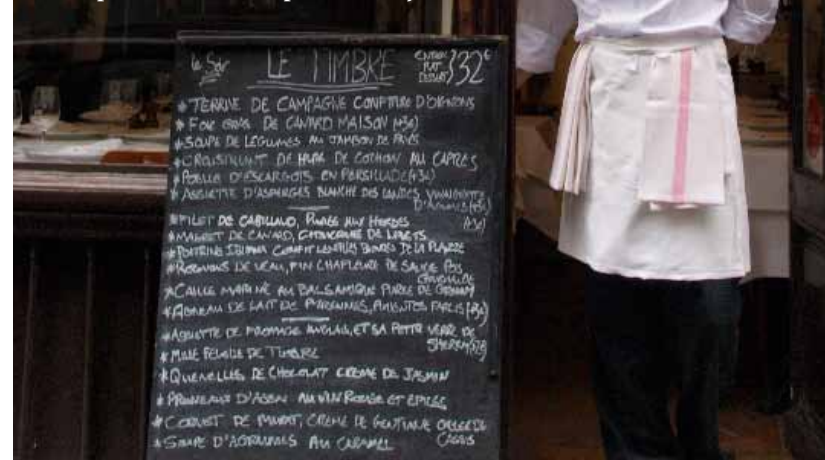 le Soir
LE TIMBRE
ENTRÉE
PLAT
DESSERT } 32€
* TERRINE DE CAMPAGNE CONFITURE D'OIGNONS
* FOIE GRAS DE CANARD MAISON (+3€)
* SOUPE DE LEGUMES AU JAMBON DE PAYS
* CROUSTILLANT DE COCHON AU CAPRES
* POELLE D'ESCARGOTS EN PERSILLADE (+3€)
* ASSIETTE D'ASPERGES BLANCHE DES LANDES, VINAIGRETTE
D'AGRUMES (+3€)
* FILET DE CABILLAUD, PUREE AUX HERBES
* MAGRET DE CANARD, DE
* POITRINE CONFIT LENTILLES DE LA
* ROGNONS DE VEAU, FIN DE SAUCE POIS
* CAILLE MARINÉ AU BALSAMIQUE PUREE DE
* AGNEAU DE LAIT DE PYRENNEES, PIMENTOS FARCIS
* ASSIETTE DE FROMAGE ANGLAIS, ET SA PETITE VERRE DE
SHERRY
* MILLE FEUILLE DE TIMBRE
* QUENELLES DE CHOCOLAT CREME DE JASMIN
* PRUNEAUX D'AGEN AU VIN ROUGE ET EPICES
* DE CREME DE GENTIANE
CASSIS
* SOUPE D'AGRUMES AU CARAMEL